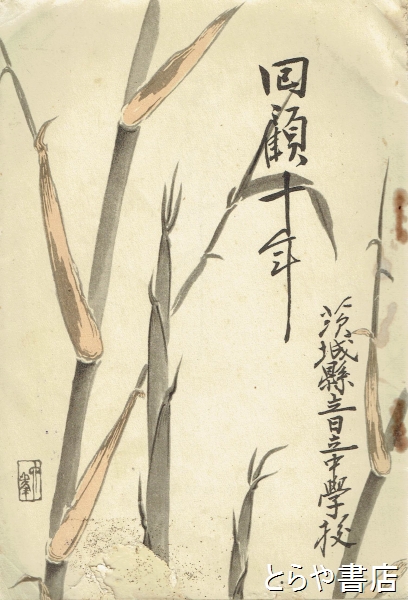 回顧十年
茨城縣立日立中學校
とらや書店